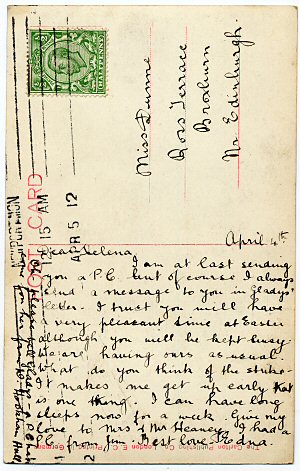 HALFPENNY
11 15 AM
APR 5 12
Miss Dunne
Ross Terrace
Broxburn
Nr Edinburgh.
POST CARD
April 4th
Dear Selena,
I am at last sending
you a P.C. but of course I always
send a message to you in Gladys'
letter. I trust you will have
a very pleasant time at Easter
although you will be kept busy
We are having ours as usual.
What do you think of the strike
It makes me get up early that
is one thing. I can have long
sleeps now for a week. Give my
love to Mrs & Mr Heaney. I had a
P.C. from Jim. Best love. Edna.
please tell
P.C.
for her from
Hall
The Carlton Publishing Co.
London E.C. Printed in Germany